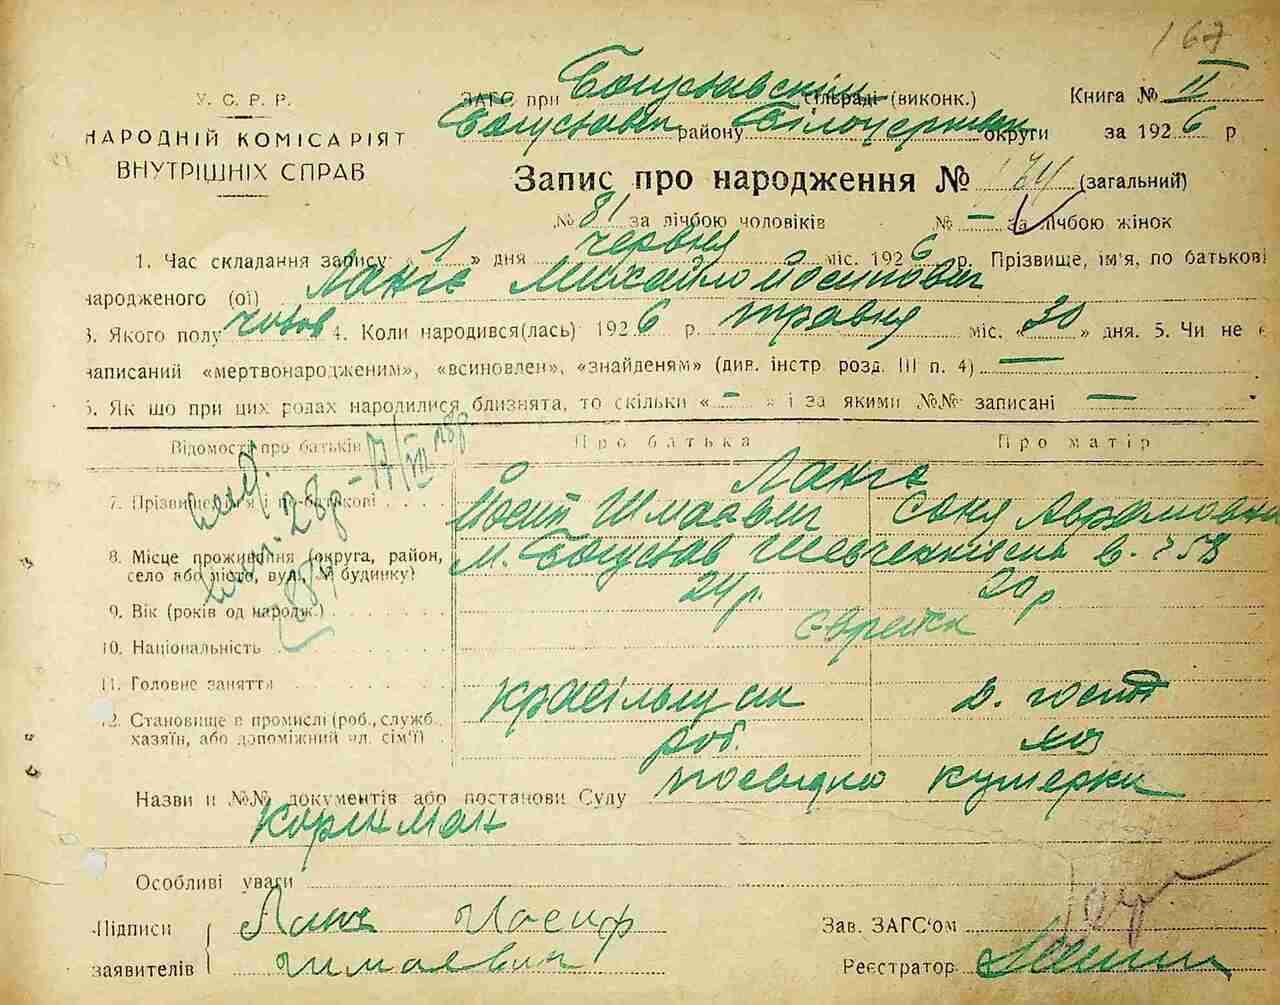 167
У. С. Р. Р.
НАРОДНІЙ КОМІСАРІЯТ
ВНУТРІШНІХ СПРАВ
ЗАГС при Богуславскім сільраді (виконк.) Книга № II
Богуславськ району Білоцерківськ округи за 1926 р
Запис про народження № 174 (загальний)
№ 81 за лічбою чоловіків № — за лічбою жінок
1. Час складання запису „ 1 " дня червня міс. 1926 р. Прізвище, ім'я, по батькові
народженого (ої) Ланге Михайло Йосипович
3. Якого полу чолов 4. Коли народився(лась) 1926 р. травня міс. «30» дня. 5. Чи не є
написаний «мертвонародженим», «всиновлен», «знайденям» (див. інстр розд. III п. 4) —
6. Як що при цих родах народилися близнята, то скільки « — » і за якими №№ записані —
Відомості про батьків Про батька Про матір
Ланге
7. Прізвище, ім'я і по-батькові Йосип Шмаєвич Соня Аврамовна
8. Місце проживання (округа, район, село або місто, вул., № будинку) м. Богуслав Шевченківська в.
9. Вік (років од народж.) 24 р. 20 р
10. Національність єврейск
11. Головне заняття красільщик д. госп
12. Становище в промислі (роб., служб., хазяїн, або допоміжний чл. сім'ї) роб.
Назви и №№ документів або постанови Суду посвідка кушерки
Корикман
Особливі уваги
Підписи Ланге Иосиф
заявителів Шмаевич
Зав. ЗАГС'ом
Реєстратор